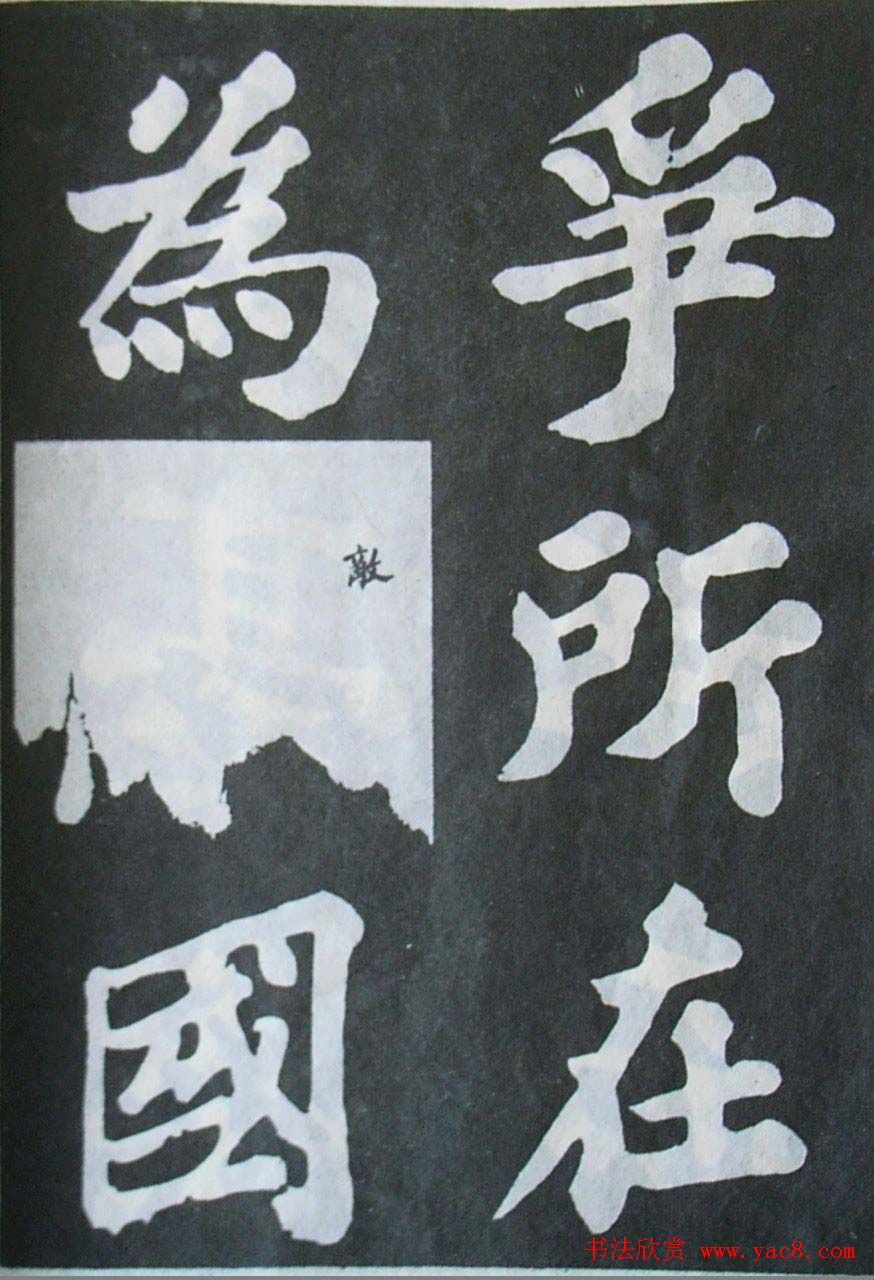 爭所在
為敵國
书法欣赏 www.yac8.com